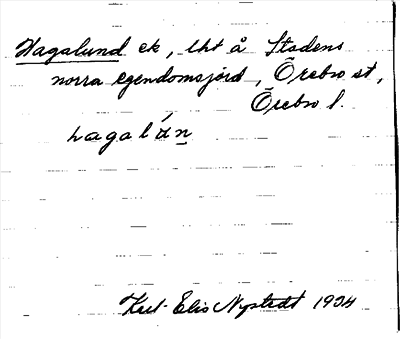 Hagalund ek, lht å Stadens
norra egendomsjord, Örebro st,
Örebro l.
hagalán
Karl-Elis Nystedt 1934